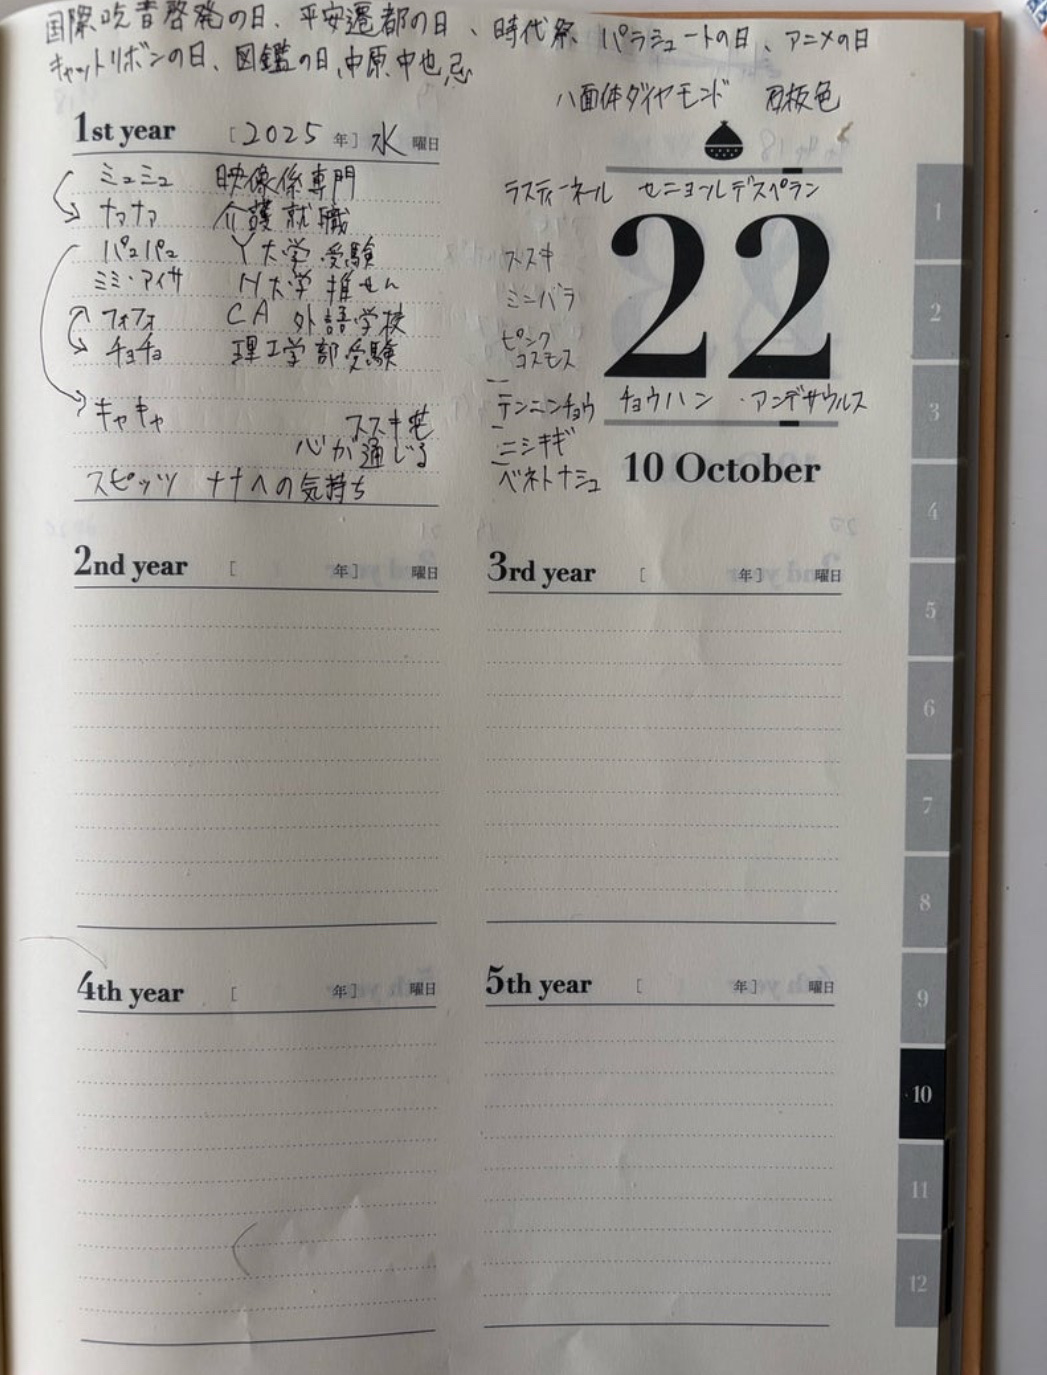 国際吃音啓発の日、平安遷都の日、時代祭 パラシュートの日、アニメの日
キャットリボンの日、図鑑の日、中原中也忌
八面体ダイヤモンド 石板色
1st year [2025年] 水曜日
ミュミュ 映像係専門
ナァナァ 介護就職
パュパュ Y大学受験
ミミ・アイサ H大学推せん
フォフォ CA 外語学校
チョチョ 理工学部受験
キャキャ ススキ
心が通じる
スピッツ ナナへの気持ち
ラスティーネール セニョールデスペラン
22
ススキ
ミニバラ
ピンク
コスモス
テンニンチョウ チョウハン ・アンデサウルス
ニシキギ
ベネトナシュ
10 October
2nd year [ 年] 曜日
3rd year [ 年] 曜日
4th year [ 年] 曜日
5th year [ 年] 曜日
1
2
3
4
5
6
7
8
9
10
11
12